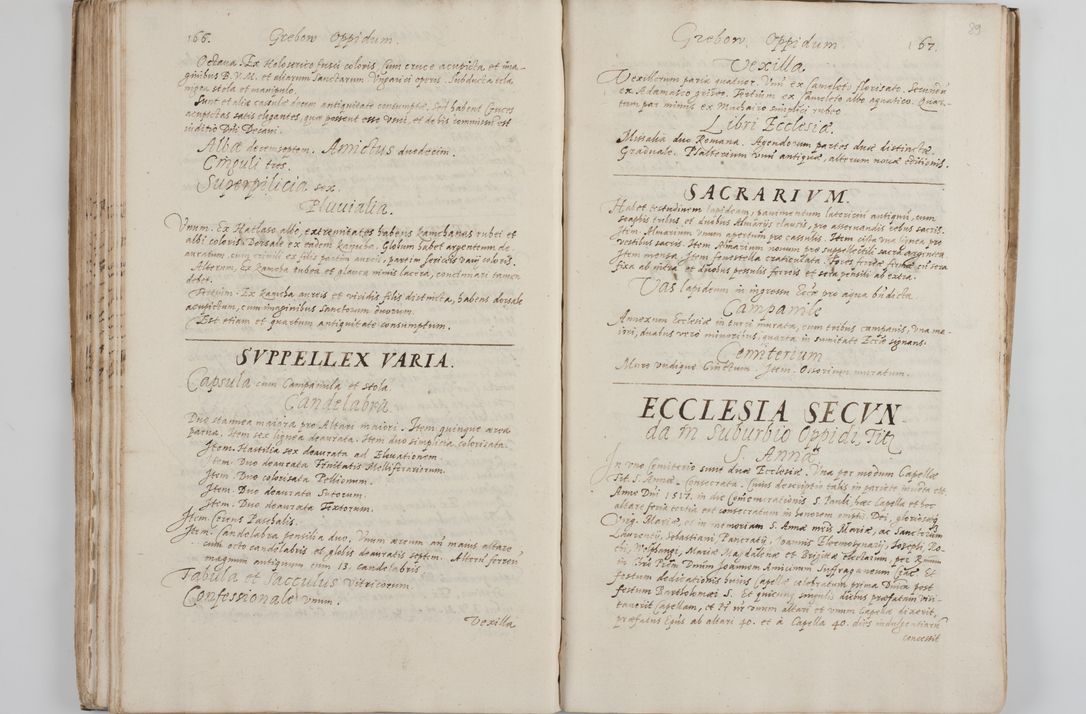 166. Grebow Oppidum.
Octava. Ex Holoserico fusci coloris, cum cruce acupicta et ima-
ginibus B. V. M. et aliarum Sanctarum Ungarici operis. Subducta tela
nigra stola et manipulo.
Sunt et aliæ casulæ decem antiquitate consumptæ, sed habent Cruces
acupictas satis elegantes, quæ possent esse veni, et de his commissum est
iudicio Dni Decani.
Albæ decem septem. Amictus duodecim.
Cinguli tres.
Superpilicia sex.
Pluuialia.
Vnum. Ex Hatlaso albo, extremitates habens kamchanas rubei et
albi coloris Dorsale ex eadem kamcha. Globum habet argenteum de-
auratum, cum ex filis partim aureis, partim sericeis varii coloris.
Alterum, Ex kamcha rubea et glauca nimis lacera, concinnari tamen
debet.
Tertium. Ex kamcha aureis et viridis filis distincta, habens dorsale
acupictum, cum imaginibus Sanctorum duorum.
Est etiam et quartum antiquitate consumptum.
SVPPELLEX VARIA.
Capsula cum Campanula et stola
Candelabra
Duo stannea maiora pro Altari maiori. Item quinque ærea
parua. Item sex lignea deaurata. Item duo simplicia colorisata.
Item. Hastilia sex deaurata ad Eleuationem.
Item. Duo deaurata Frnitatis Mellificariorum.
Item. Duo colorisata Pellionum.
Item. Duo deaurata Sutorum.
Item. Duo deaurata Textorum.
Item. Cereus Paschalis.
Item. Candelabra pensilia duo, Vnum æreum an maius altare,
cum octo candelabris et globis deauratis septem. Alterum ferreum
magnum antiquum cum 13. candelabris.
Tabula et Sacculus vitricorum.
Confessionale vnum.
Vexilla
89
Grebow Oppidum 167.
Vexilla
Vexillorum paria quatuor. Vnum ex Cameleto florisato. Secundum
ex Adamasco griseo. Tertium ex Cameleto albo aquatico. Quar-
tum par minus ex Muchairo simplici rubro
Libri Ecclesiæ.
Missalia duo Romana. Agendorum partes duæ distinctæ.
Graduale. Psalterium vnum antiquæ, alterum nouæ editionis.
SACRARIVM.
Habet testudinem lapideam, pavimentum latericium antiquum, cum
scaphis tribus et duabus Almariis clausis, pro asservandis rebus sacris.
Item. Almarium vnum apertum pro casulis. Item cista vna lignea pro
vestibus sacris. Item Almarium nouum pro suppellectili sacra argentea.
Item mensa. Item fenestella craticulata. Fores ferreæ cum sera
fixa ab intra et duobus pessulis ferreis et sera pensili ab extra.
Vas lapideum in ingressu Ecclæ pro aqua bndicta
Campanile
Annexum Ecclesiæ in turri murata, cum tribus campanis, vna ma-
iori, duabus vero minoribus, quarta in sumitate Ecclæ signans.
Cœmiterium
Muro vndique Cinctum. Item. Ossorium muratum.
ECCLESIA SECVN
da in Suburbio Oppidi, Tit
S. Annæ
In vno Cemiterio sunt duæ Ecclesiæ. Vna per modum Capellæ
Tit. S. Annæ. Consecrata. Cuius descriptio talis in pariete inuenta est.
Anno Dni 1517. in die Comemorationis S. Pauli, hæc Capella et hoc
altare feria tertia est consecratum in honorem omnipotentis Dei, gloriosæque
Virg. Mariæ, et in memoriam S. Annæ mris Mariæ, ac Sanctorum
Laurentii, Sebastiani, Pancratii, Joannis Eleemosynarii, Joseph, Ro-
chi, Wolfgangi, Mariæ Magdalenæ et Brigittæ
in Dno Vnum Joannem Amicinum Suffraganeum Et
festum dedicationis huius Capellæ celebratum prima Dnica post
festum Bartholomæi S. Et quicunque singulis diebus præfatam visi-
tauerit Capellam, et Pr nr vnum altari et vnum Capellæ dixerit,
præfatus Epus ab altari 40. et à Capella 40. dies indulgentiarum
concessit